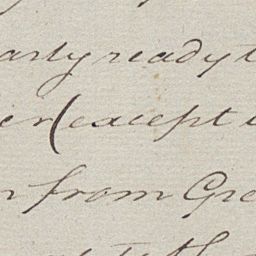 arly ready t
er (except
from Gre